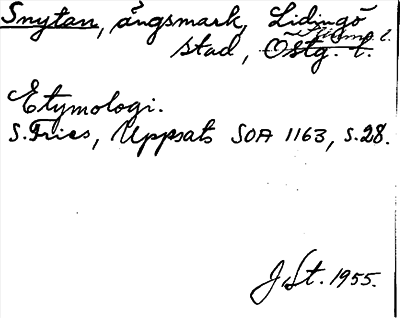 Snytan, ängsmark, Lidingö
stad, Östg. l.
Etymologi.
S. Fries, Uppsats SOA 1163, s. 28.
J. St. 1955.